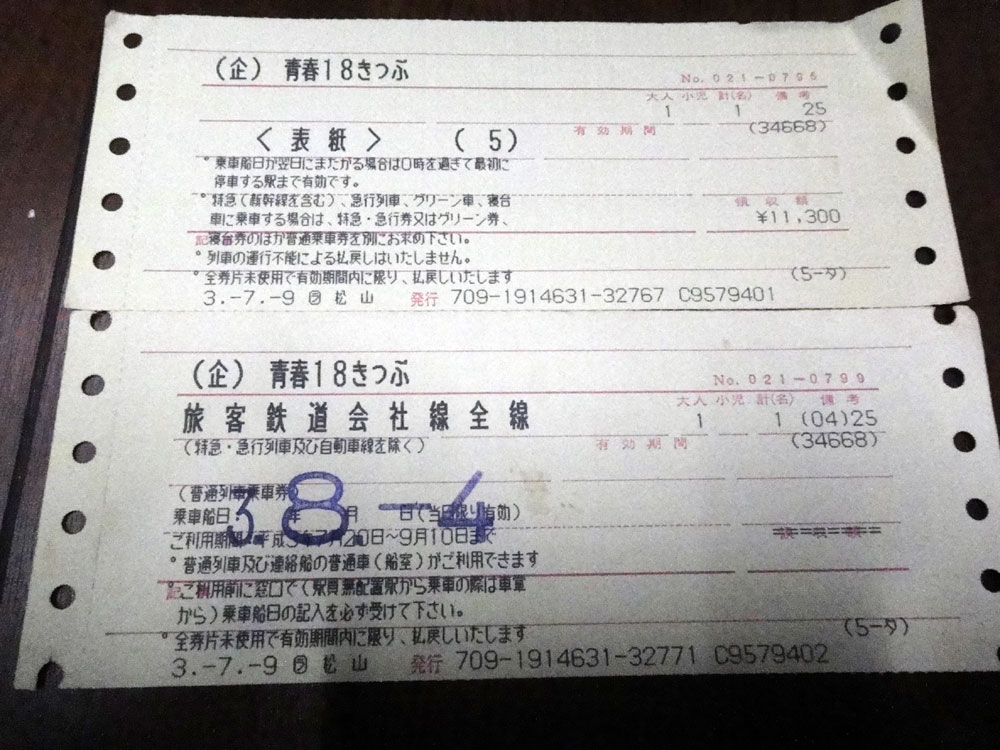 (企) 青春18きっぷ
No. 021-0795
大人 小児 計(名) 備考
1 1 25
有効期間 (34668)
<表紙> (5)
°乗車船日が翌日にまたがる場合は0時を過ぎて最初に
停車する駅まで有効です。
°特急(新幹線を含む)、急行列車、グリーン車、寝台
車に乗車する場合は、特急・急行券又はグリーン券、
寝台券のほか普通乗車券を別にお求め下さい。
領収額
¥11,300
°列車の運行不能による払戻しはいたしません。
°全券片未使用で有効期間内に限り、払戻しいたします
(5-タ)
3.-7.-9 松山 発行 709-1914631-32767 C9579401
(企) 青春18きっぷ
No. 021-0799
大人 小児 計(名) 備考
旅客鉄道会社線全線
1 1 (04)25
(特急・急行列車及び自動車線を除く)
有効期間 (34668)
(普通列車乗車券)
乗車船日. 年 月 日(当日限り有効)
3. 8-4
ご利用期間 平成3年7月20日~9月10日まで
°普通列車及び連絡船の普通車(船室)がご利用できます
°ご利用前に窓口で(駅員無配置駅から乗車の際は車掌
から)乗車船日の記入を必ず受けて下さい。
°全券片未使用で有効期間内に限り、払戻しいたします
(5-タ)
3.-7.-9 松山 発行 709-1914631-32771 C9579402